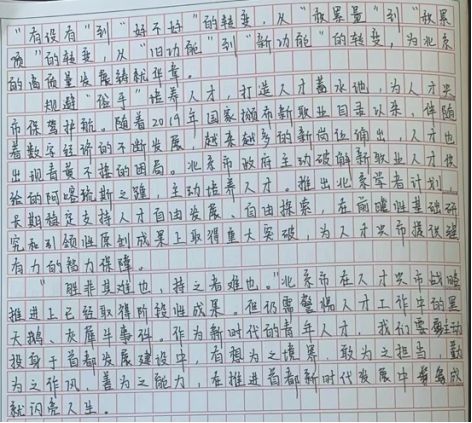 "有没有"到"好不好"的转变，从"敢累量"到"敢累
质"的转变，从"旧功能"到"新功能"的转变，为北京
的高质量发展铸就华章。
规避"俗平"培养人才，打造人才蓄水池，为人才兴
市保驾护航。随着2019年国家颁布新职业目录以来，伴随
着数字经济的不断发展，越来越多的新岗位涌出，人才也
出现青黄不接的困局。北京市政府主动破解新职业人才供
给的阿喀琉斯之踵，主动培养人才。推出北京学者计划，
长期稳定支持人才自由发展、自由探索，在前瞻性基础研
究和引领性原创成果上取得重大突破，为人才兴市提供强
有力的智力保障。
"胜非其难也，持之者难也。"北京市在人才兴市战略
推进上已经取得阶段性成果。但仍需警惕人才工作中的黑
天鹅、灰犀牛事件。作为新时代的青年人才，我们要主动
投身于首都发展建设中，有想为之境界、敢为之担当、勤
为之作风、善为之能力，在推进首都新时代发展中成
就闪亮人生。